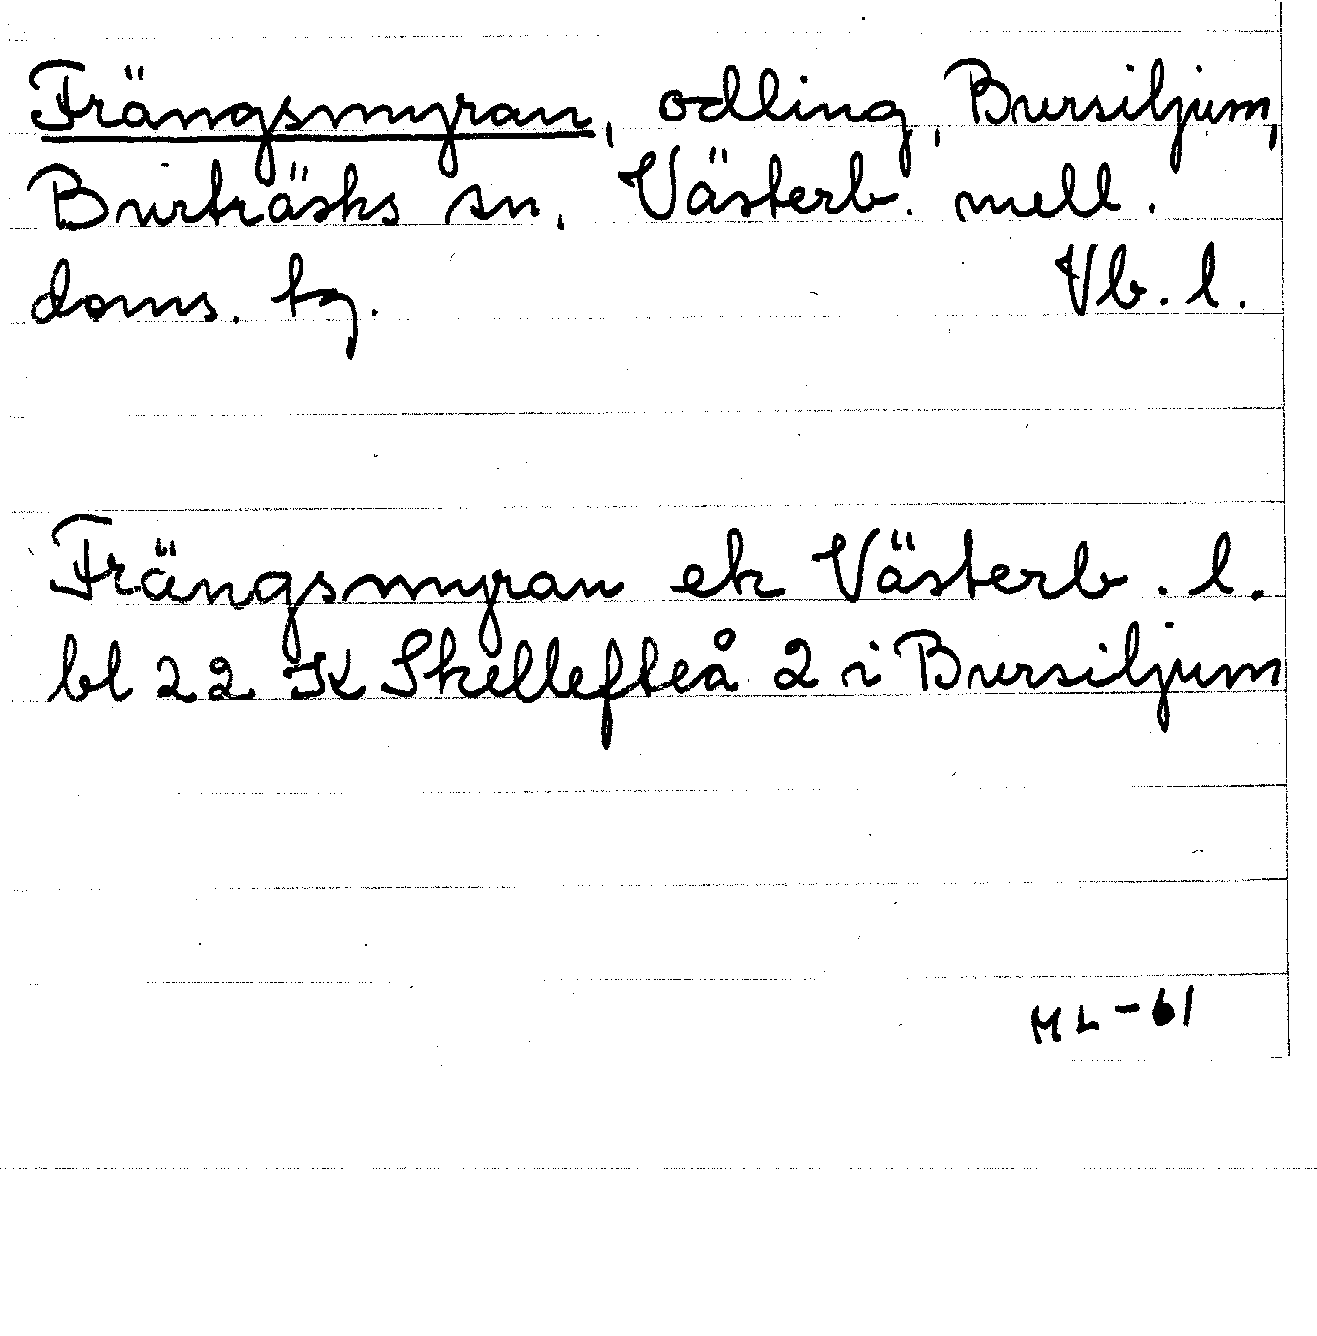 Frängsmyran, odling, Bursiljum,
Burträsks sn, Västerb. mell.
doms. tg. Vb. l.
Frängsmyran ek Västerb. l.
bl 22 K Skellefteå 2 i Bursiljum
HL-61